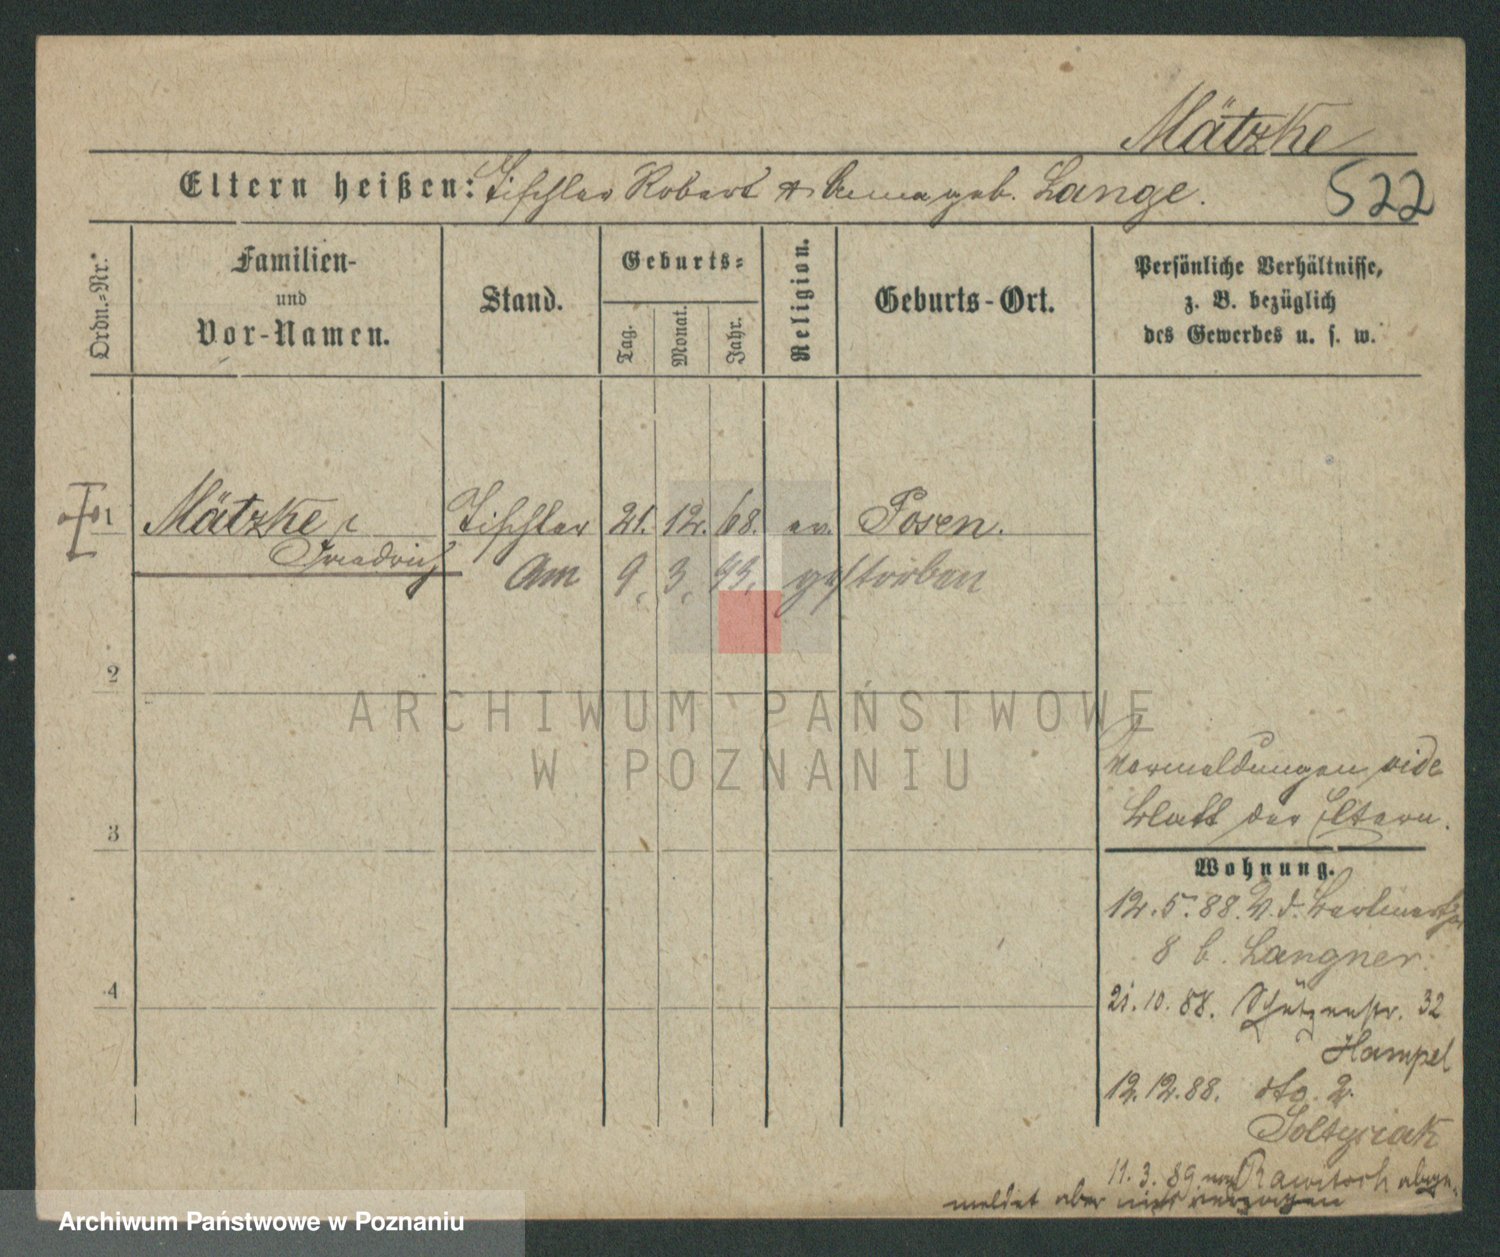 Mätzke
Eltern heißen: Tischler Robert u Anna geb. Lange.
522
Ordn.-Nr.
Familien-
und
Vor-Namen.
Stand.
Geburts-
Tag.
Monat.
Jahr.
Religion.
Geburts-Ort.
Persönliche Verhältnisse,
z. B. bezüglich
des Gewerbes u. s. w.
1 Mätzke, Tischler 21. 12. 68. ev. Posen.
Friedrich Am 9. 3. 93. gestorben
2
3
4
ARCHIWUM PAŃSTWOWE
W POZNANIU
Vermeldungen vide
Blatt der Eltern.
Wohnung.
12.5.88. V. d. Berlinerthor
8 b. Langner.
21.10.88. Schützenstr. 32
Hampel
12.12.88. dto. 2.
Soltysiak
11.3.89. nach Rawitsch abge-
meldet aber nicht verzogen
Archiwum Państwowe w Poznaniu